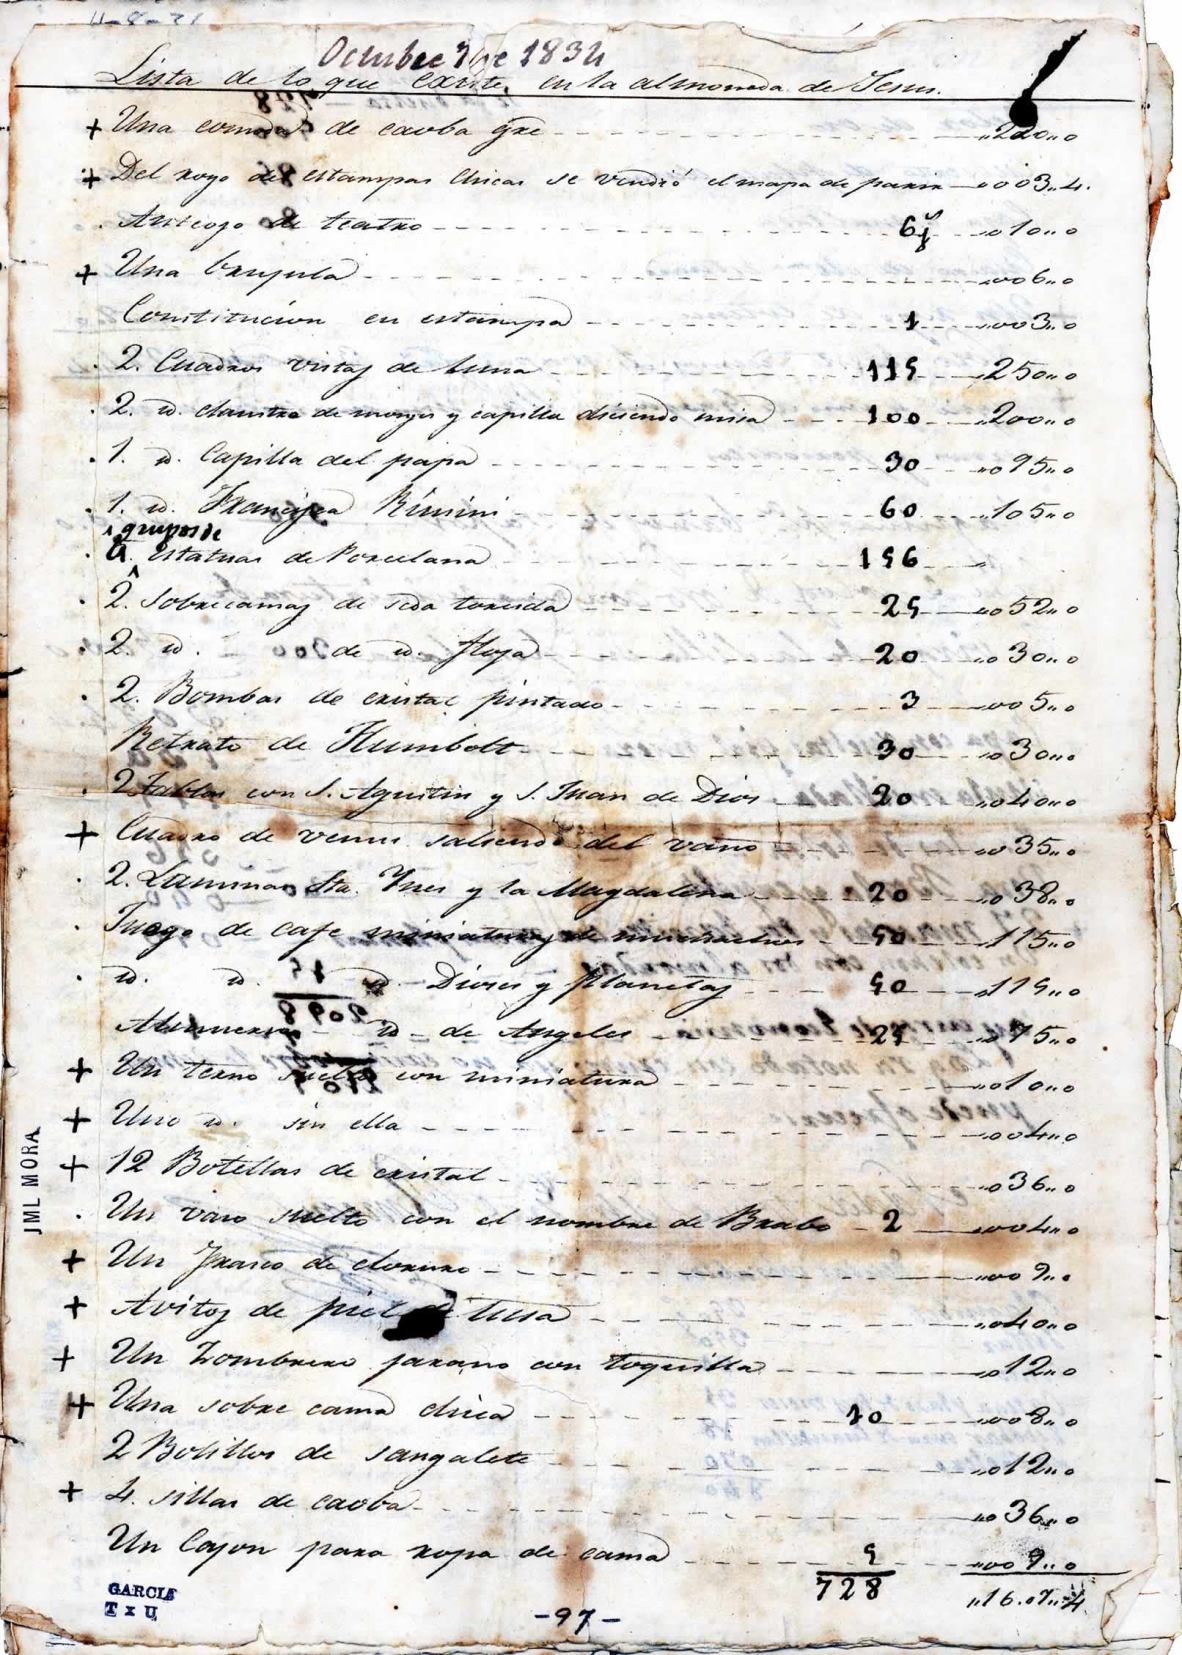 11-8-31
Octubre 1 de 1834
Lista de lo que existe, en la almoneda de Jesus.
+ Una comoda de caoba gre „220„0
+ Del royo de estampas chicas se vendió el mapa de paris „003„4.
. Anteojo de teatro 6 „010„0
+ Una brujula „006„0
Constitucion en estampa 1 „003„0
. 2. Cuadros vistas de luna 115 „250„0
. 2. id. claustro de monjas y capilla diciendo misa 100 „200„0
. 1. id. Capilla del papa 30 „095„0
. 1. id. Francisca Rímini 60 „105„0
grupos de
. estatuas de Porcelana 156
. 2. Sobrecamas de seda torcida 25 „052„0
. 2. id. de id. floja 20 „030„0
. 2. Bombas de cristal pintado 3 „005„0
Retrato de Humbolt 30 „030„0
. 2 Tablas con S. Agustin y S. Juan de Dios 20 „040„0
+ Cuadro de venus saliendo del vaño „035„0
. 2. Laminas Sta. Ynes y la Magdalena 20 „038„0
. Juego de cafe miniaturas de muchachos 50 „115„0
. id. id. id. Dioses y planetas 50 „115„0
Almuerzo id de Angeles 25 „075„0
+ Un terno suelto con miniatura „010„0
+ Uno id. sin ella „004„0
+ 12 Botellas de cristal „036„0
. Un vaso suelto con el nombre de Brabo 2 „004„0
+ Un frasco de cloruro „009„0
+ Avitos de piel de tusa „040„0
+ Un Zombrero jarano con toquilla „012„0
+ Una sobre cama chica 10 „008„0
2 Bolillos de sangalete „012„0
+ 4. sillas de caoba „036„0
Un Cajon para ropa de cama 5 „009„0
728 „16.07„4
JML MORA
GARCIA
T x U
-97-